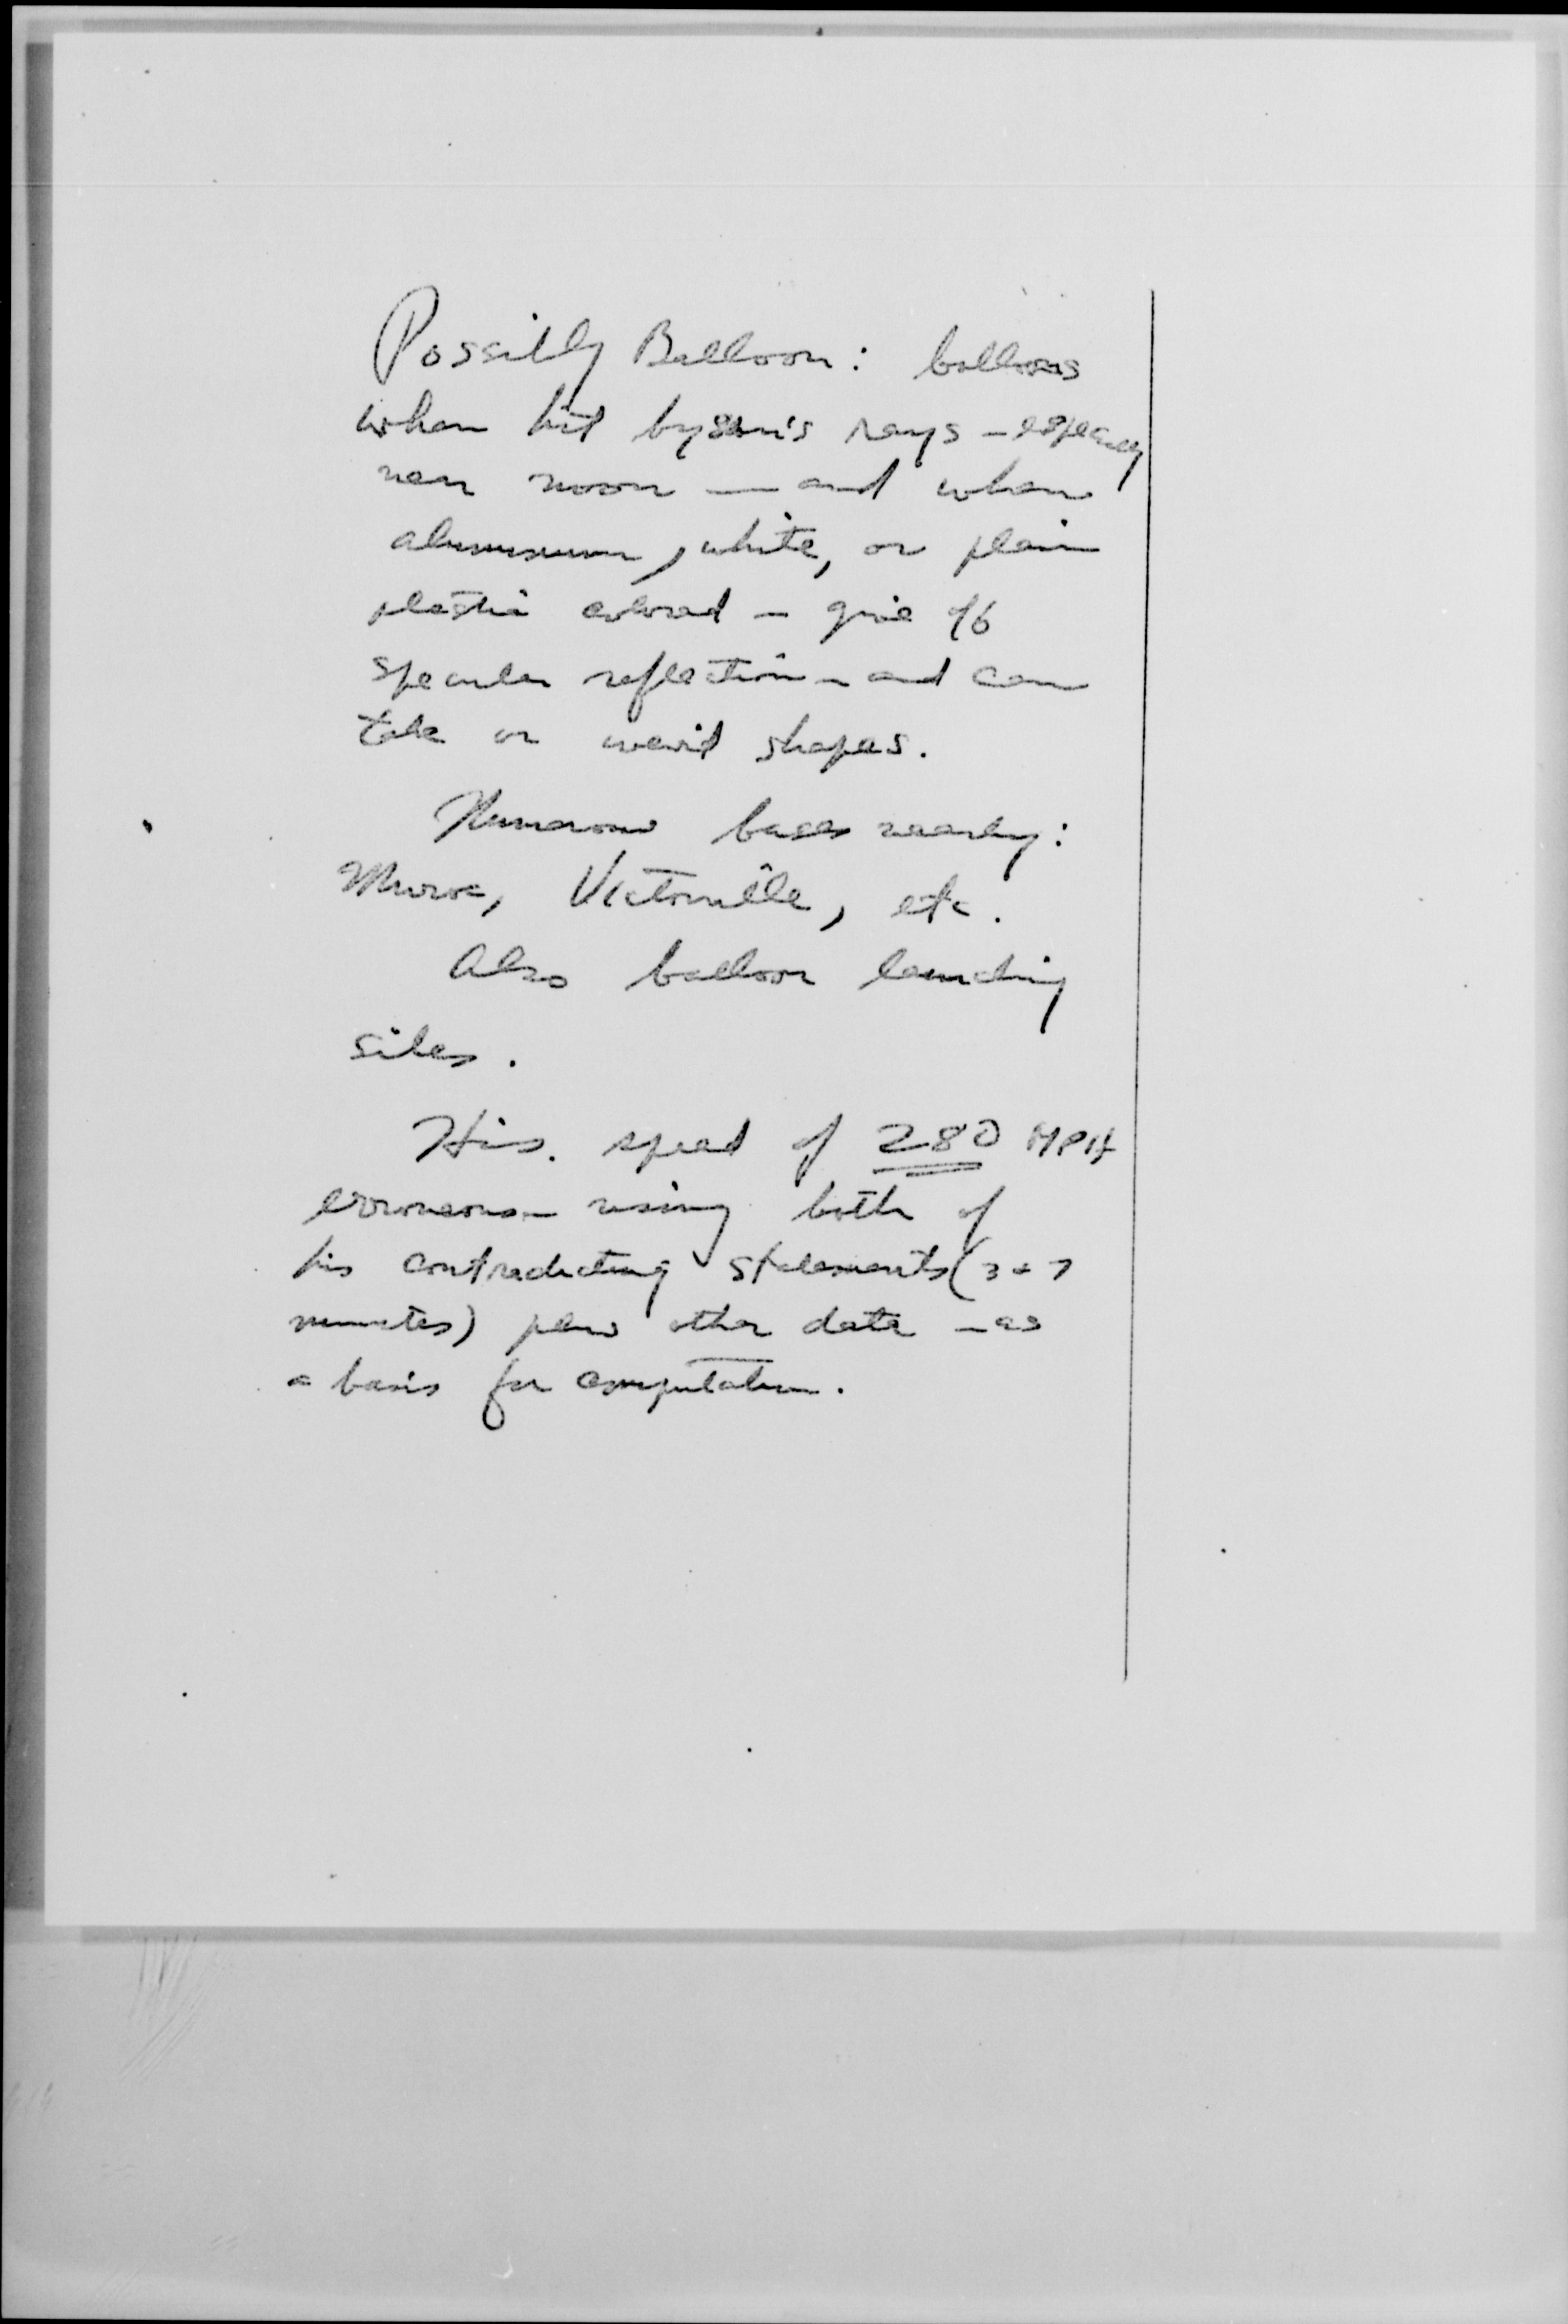 Possibly Balloon: balloons
when hit by sun's rays - especially
near noon — and when
aluminum, white, or plain
plastic colored - give off
specular reflection - and can
take on weird shapes.
Numerous bases nearby:
Muroc, Victorville, etc.
Also balloon launching
sites.
His. speed of 280 MPH
erroneous - using both of
his contradicting statements (3 + 7
minutes) plus other data - as
a basis for computation.